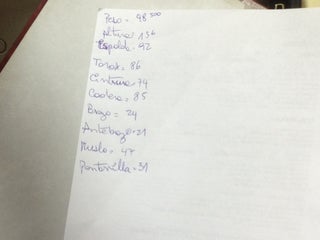 Peso = 48 500
Altura = 156
Espalda = 92
Torax = 86
Cintura = 74
Cadera = 85
Brazo = 24
Antebrazo = 21
Muslo = 47
Pantorrilla = 31